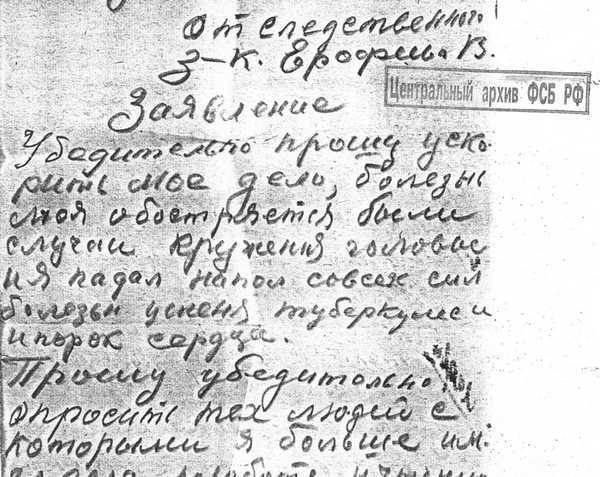 От следственного
З-к. Ерофеева В.
Центральный архив ФСБ РФ
Заявление
Убедительно прошу уско
рить мое дело, болезнь
моя обостряется были
случаи круження головы
и я падал напол совсех сил
болезнь у меня туберкулез и
ипорок сердца.
Прошу убедительно
опросить тех людей с
которыми я больше им